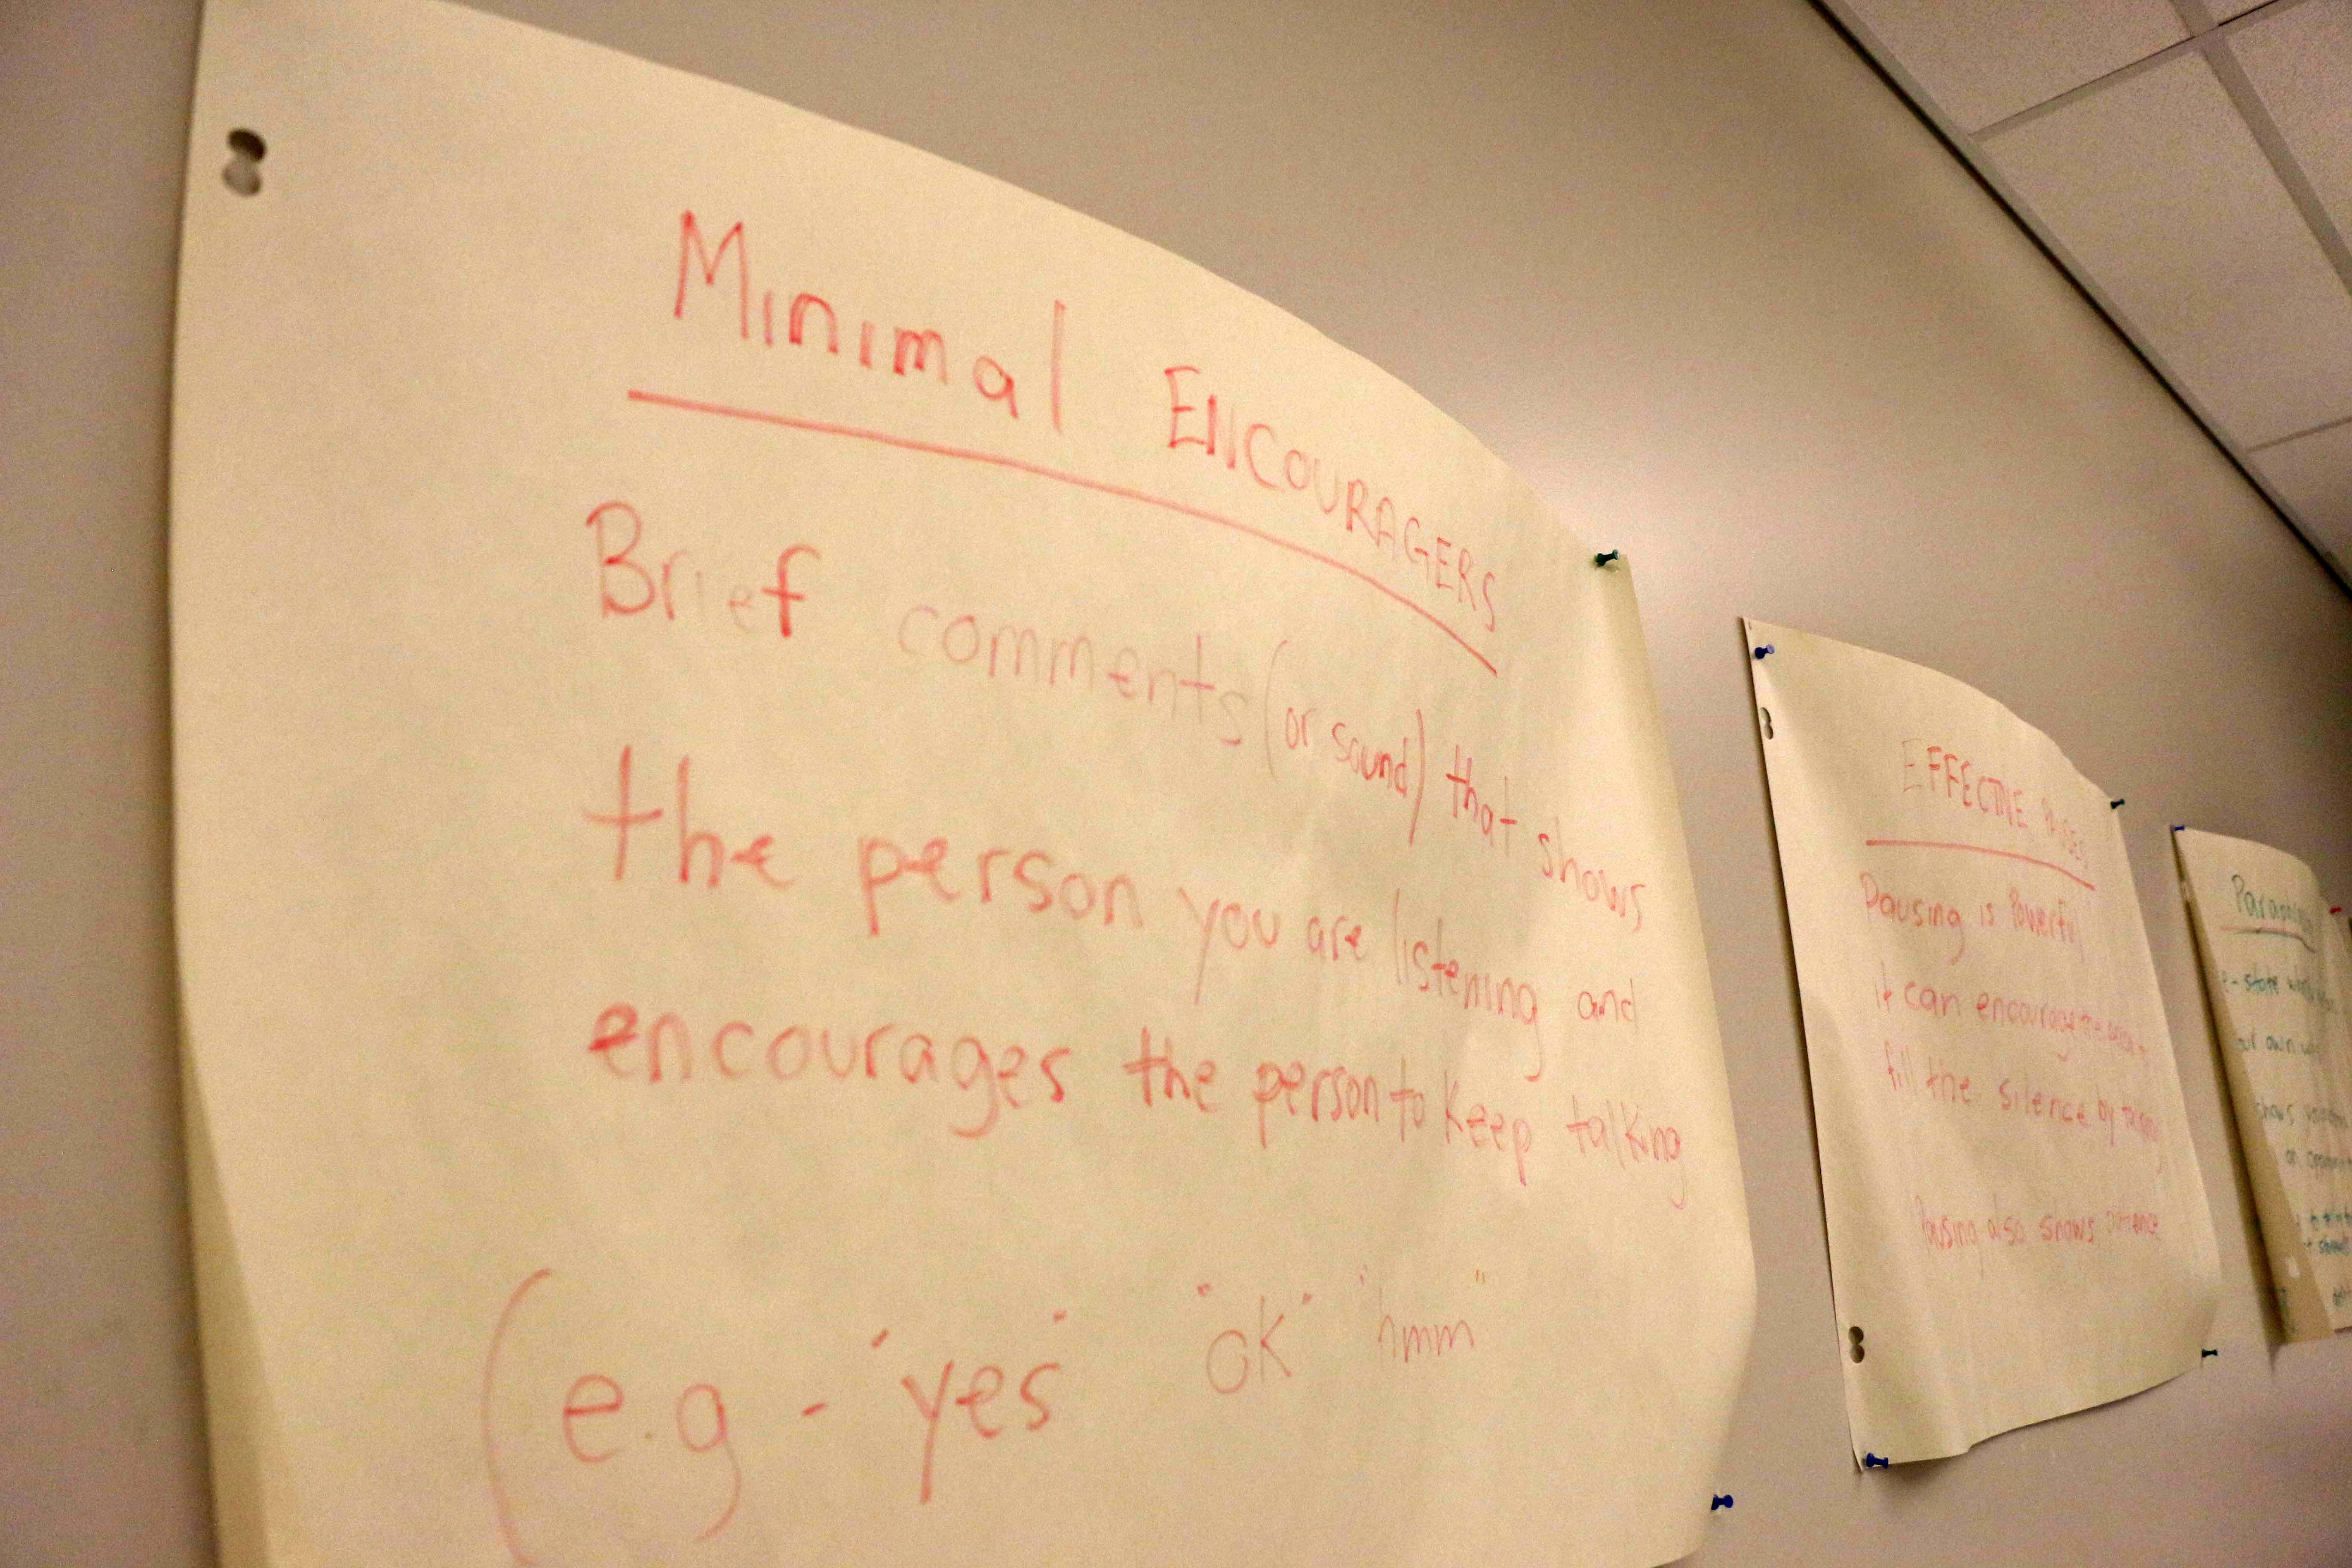 Minimal ENCOURAGERS
Brief comments (or sound) that shows
the person you are listening and
encourages the person to keep talking
(e.g - "yes" "ok" "hmm"
EFFECTIVE PAUSES
Pausing is Powerful
it can encourage
fill the silence by talking
Pausing also shows
e-state
our own
shows